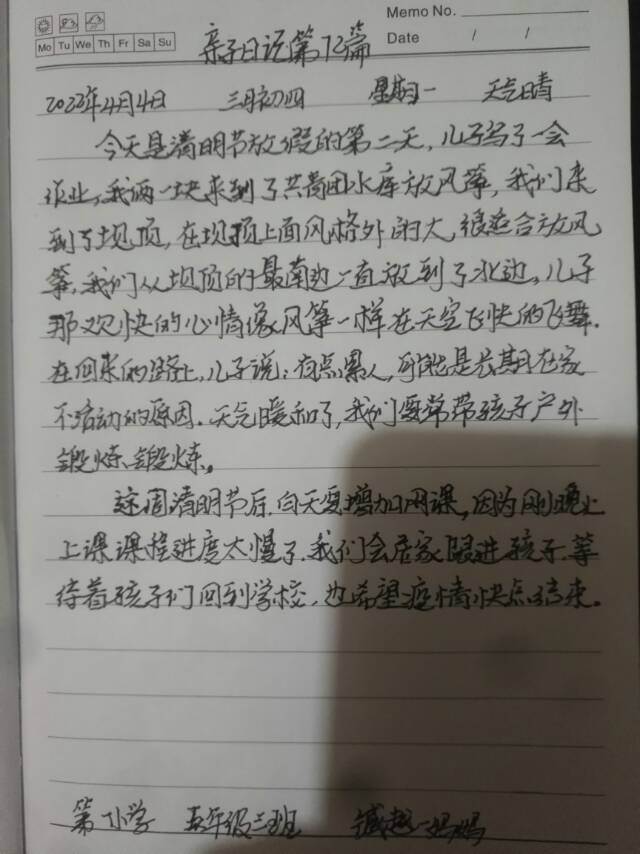 Memo No.
Mo Tu We Th Fr Sa Su
Date / /
亲子日记第72篇
2022年4月4日 三月初四 星期一 天气晴
今天是清明节放假的第二天,儿子写了一会
作业,我俩一块来到了共青团水库放风筝,我们来
到了坝顶,在坝顶上面风格外的大,很适合放风
筝,我们从坝顶的最南边一直放到了北边。儿子
那欢快的心情像风筝一样在天空飞快的飞舞.
在回来的路上,儿子说:有点累人,可能是长期在家
不活动的原因.天气暖和了,我们要常带孩子户外
锻炼锻炼。
这周清明节后,白天要增加网课,因为刚晚上
上课课程进度太慢了.我们会居家跟进孩子.等
待着孩子们回到学校,也希望疫情快点结束。
第一小学 五年级三班 臧越一妈妈